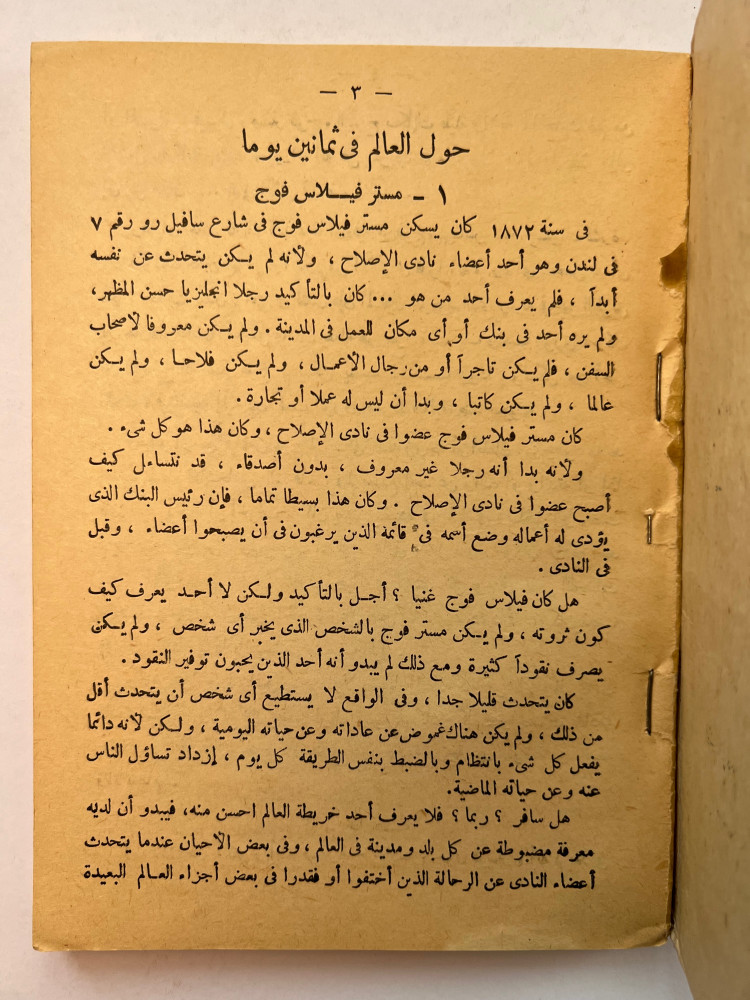 — ٣ —
حول العالم فى ثمانين يوما
١ - مستر فيلاس فوج
فى سنة ١٨٧٢ كان يسكن مستر فيلاس فوج فى شارع سافيل رو رقم ٧
فى لندن وهو أحد أعضاء نادى الإصلاح ، ولأنه لم يكن يتحدث عن نفسه
أبدآ ، فلم يعرف أحد من هو ... كان بالتأكيد رجلا انجليزيا حسن المظهر،
ولم يره أحد فى بنك أو أى مكان للعمل فى المدينة . ولم يكن معروفا لأصحاب
السفن ، فلم يكن تاجرآ أو من رجال الأعمال ، ولم يكن فلاحا ، ولم يكن
عالما ، ولم يكن كاتبا ، وبدا أن ليس له عملا أو تجارة .
كان مستر فيلاس فوج عضوا فى نادى الإصلاح ، وكان هذا هو كل شىء .
ولأنه بدا أنه رجلا غير معروف ، بدون أصدقاء ، قد نتساءل كيف
أصبح عضوا فى نادى الإصلاح . وكان هذا بسيطا تماما ، فإن رئيس البنك الذى
يؤدى له أعماله وضع أسمه فى قائمة الذين يرغبون فى أن يصبحوا أعضاء ، وقبل
فى النادى .
هل كان فيلاس فوج غنيا ؟ أجل بالتأكيد ولكن لا أحد يعرف كيف
كون ثروته ، ولم يكن مستر فوج بالشخص الذى يخبر أى شخص ، ولم يكن
يصرف نقودآ كثيرة ومع ذلك لم يبدو أنه أحد الذين يحبون توفير النقود .
كان يتحدث قليلا جدا ، وفى الواقع لا يستطيع أى شخص أن يتحدث أقل
من ذلك ، ولم يكن هناك غموض عن عاداته وعن حياته اليومية ، ولكن لأنه دائما
يفعل كل شىء بانتظام وبالضبط بنفس الطريقة كل يوم ، إزداد تساؤل الناس
عنه وعن حياته الماضية.
هل سافر ؟ ربما ؟ فلا يعرف أحد خريطة العالم احسن منه، فيبدو أن لديه
معرفة مضبوطة عن كل بلد ومدينة فى العالم ، وفى بعض الأحيان عندما يتحدث
أعضاء النادى عن الرحالة الذين أختفوا أو فقدرا فى بعض أجزاء العالم البعيدة